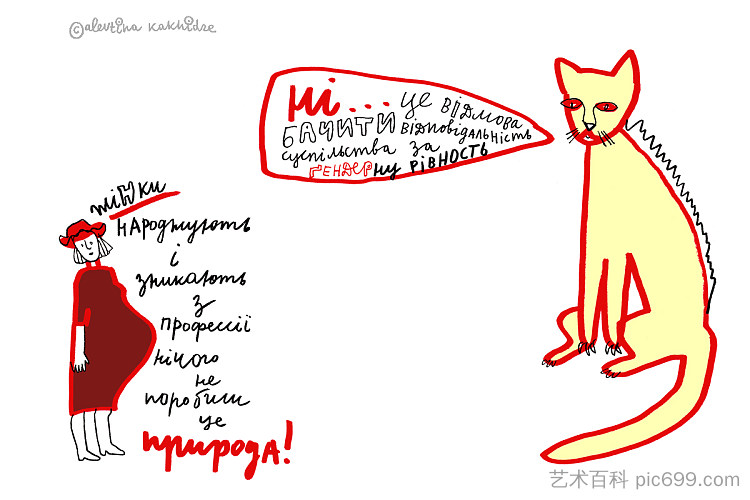 ©alevtina kakhidze
ні... це відмова
бачити відповідальність
суспільства за
ґендерну рівность
жінки
народжують
і
зникають
з
професії
нічого
не
поробиш
це
природа!
艺术百科 pic699.com